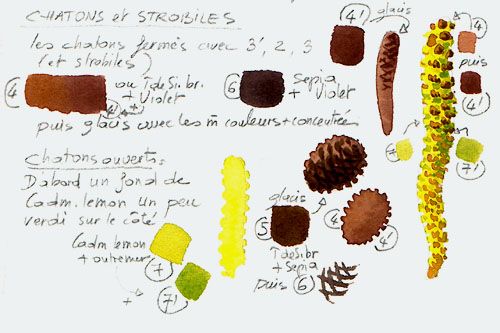 CHATONS et STROBILES
les chatons fermés avec 3', 2, 3
(et strobiles)
glacis
4'
4
ou T de Si. br.
+ Violet
4'
6
sepia
+ Violet
puis glacis avec les m̄ couleurs + concentrée
4
puis
4'
7
7'
Chatons ouverts.
D'abord un fond de
Cadm. lemon un peu
verdi sur le côté
Cadm lemon
+ outremer
7
+
7'
glacis
5
T de Si br
+ Sepia
puis 6
4
4'